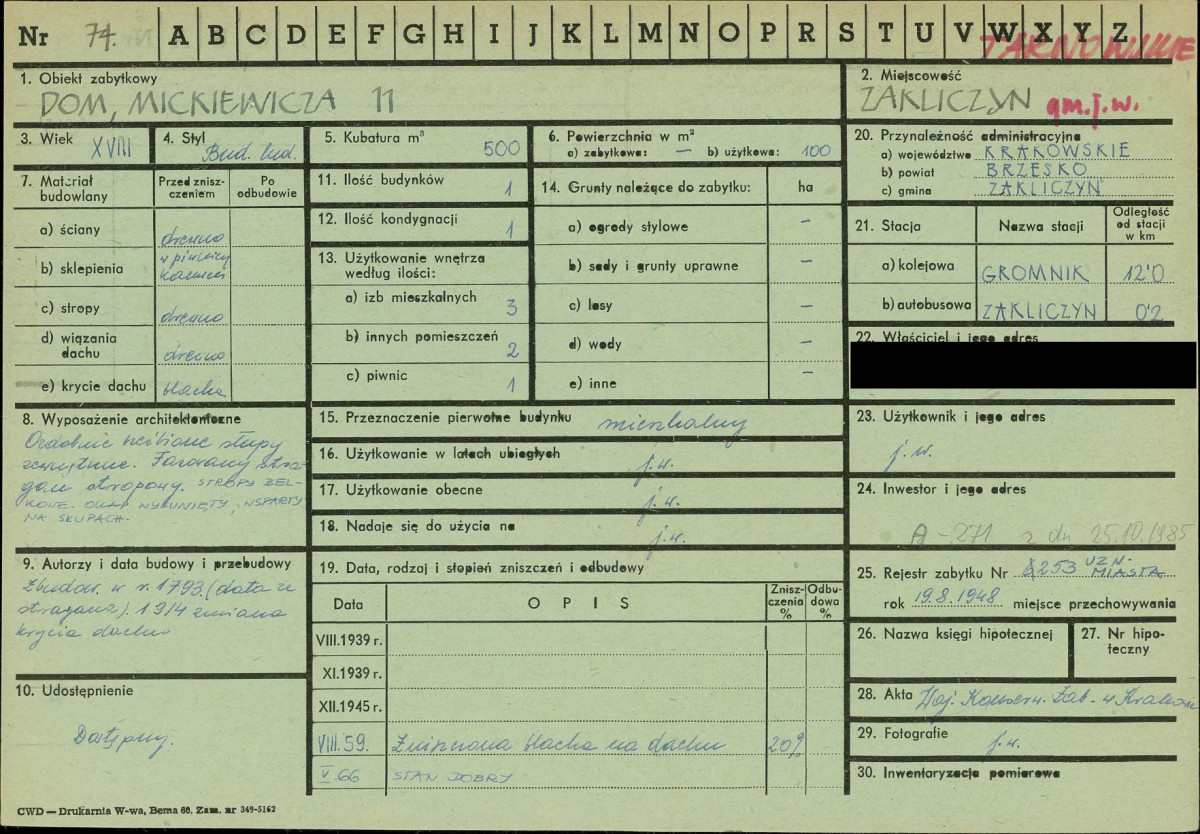 Nr 74. A B C D E F G H I J K L M N O P R S T U V W X Y Z
TARNOWSKIE
1. Obiekt zabytkowy
DOM, MICKIEWICZA 11
2. Miejscowość
ZAKLICZYN gm. j. w.
3. Wiek XVIII
4. Styl Bud. lud.
5. Kubatura m³ 500
6. Powierzchnia w m²
a) zabytkowa: — b) użytkowa: 100
20. Przynależność administracyjna
a) województwo KRAKOWSKIE
b) powiat BRZESKO
c) gmina ZAKLICZYN
7. Materiał budowlany
Przed zniszczeniem
Po odbudowie
a) ściany drewno
b) sklepienia w piwnicy kamień
c) stropy drewno
d) wiązania dachu drewno
e) krycie dachu blacha
11. Ilość budynków 1
12. Ilość kondygnacji 1
13. Użytkowanie wnętrza według ilości:
a) izb mieszkalnych 3
b) innych pomieszczeń 2
c) piwnic 1
14. Grunty należące do zabytku: ha
a) ogrody stylowe —
b) sady i grunty uprawne —
c) lasy —
d) wody —
e) inne —
21. Stacja
Nazwa stacji
Odległość od stacji w km
a) kolejowa GROMNIK 12'0
b) autobusowa ZAKLICZYN 0'2
22. Właściciel i jego adres
8. Wyposażenie architektoniczne
Ozdobnie rzeźbione słupy
zewnętrzne. Fazowany stra-
garz stropowy. STROPY BEL-
KOWE. OKAP WYSUNIĘTY, WSPARTY
NA SŁUPACH.
15. Przeznaczenie pierwotne budynku mieszkalny
16. Użytkowanie w latach ubiegłych j. w.
17. Użytkowanie obecne j. w.
18. Nadaje się do użycia na j. w.
23. Użytkownik i jego adres
j. w.
24. Inwestor i jego adres
A - 271 z dn 25.10.1985
9. Autorzy i data budowy i przebudowy
Zbudow. w r. 1793 (data ze
stragarza). 1914 zmiana
krycia dachu
19. Data, rodzaj i stopień zniszczeń i odbudowy
Data
OPIS
Zniszczenia %
Odbudowa %
VIII.1939 r.
XI.1939 r.
XII.1945 r.
VIII.59. Zniszczona blacha na dachu 20%
V.66 STAN DOBRY
25. Rejestr zabytku Nr 253 UZN. MIASTA
rok 19.8.1948 miejsce przechowywania
26. Nazwa księgi hipotecznej
27. Nr hipoteczny
10. Udostępnienie
Dostępny.
28. Akta Woj. Konserw. Zab. w Krakow
29. Fotografie j. w.
30. Inwentaryzacja pomiarowa
CWD — Drukarnia W-wa, Bema 60. Zam. nr 349-5162